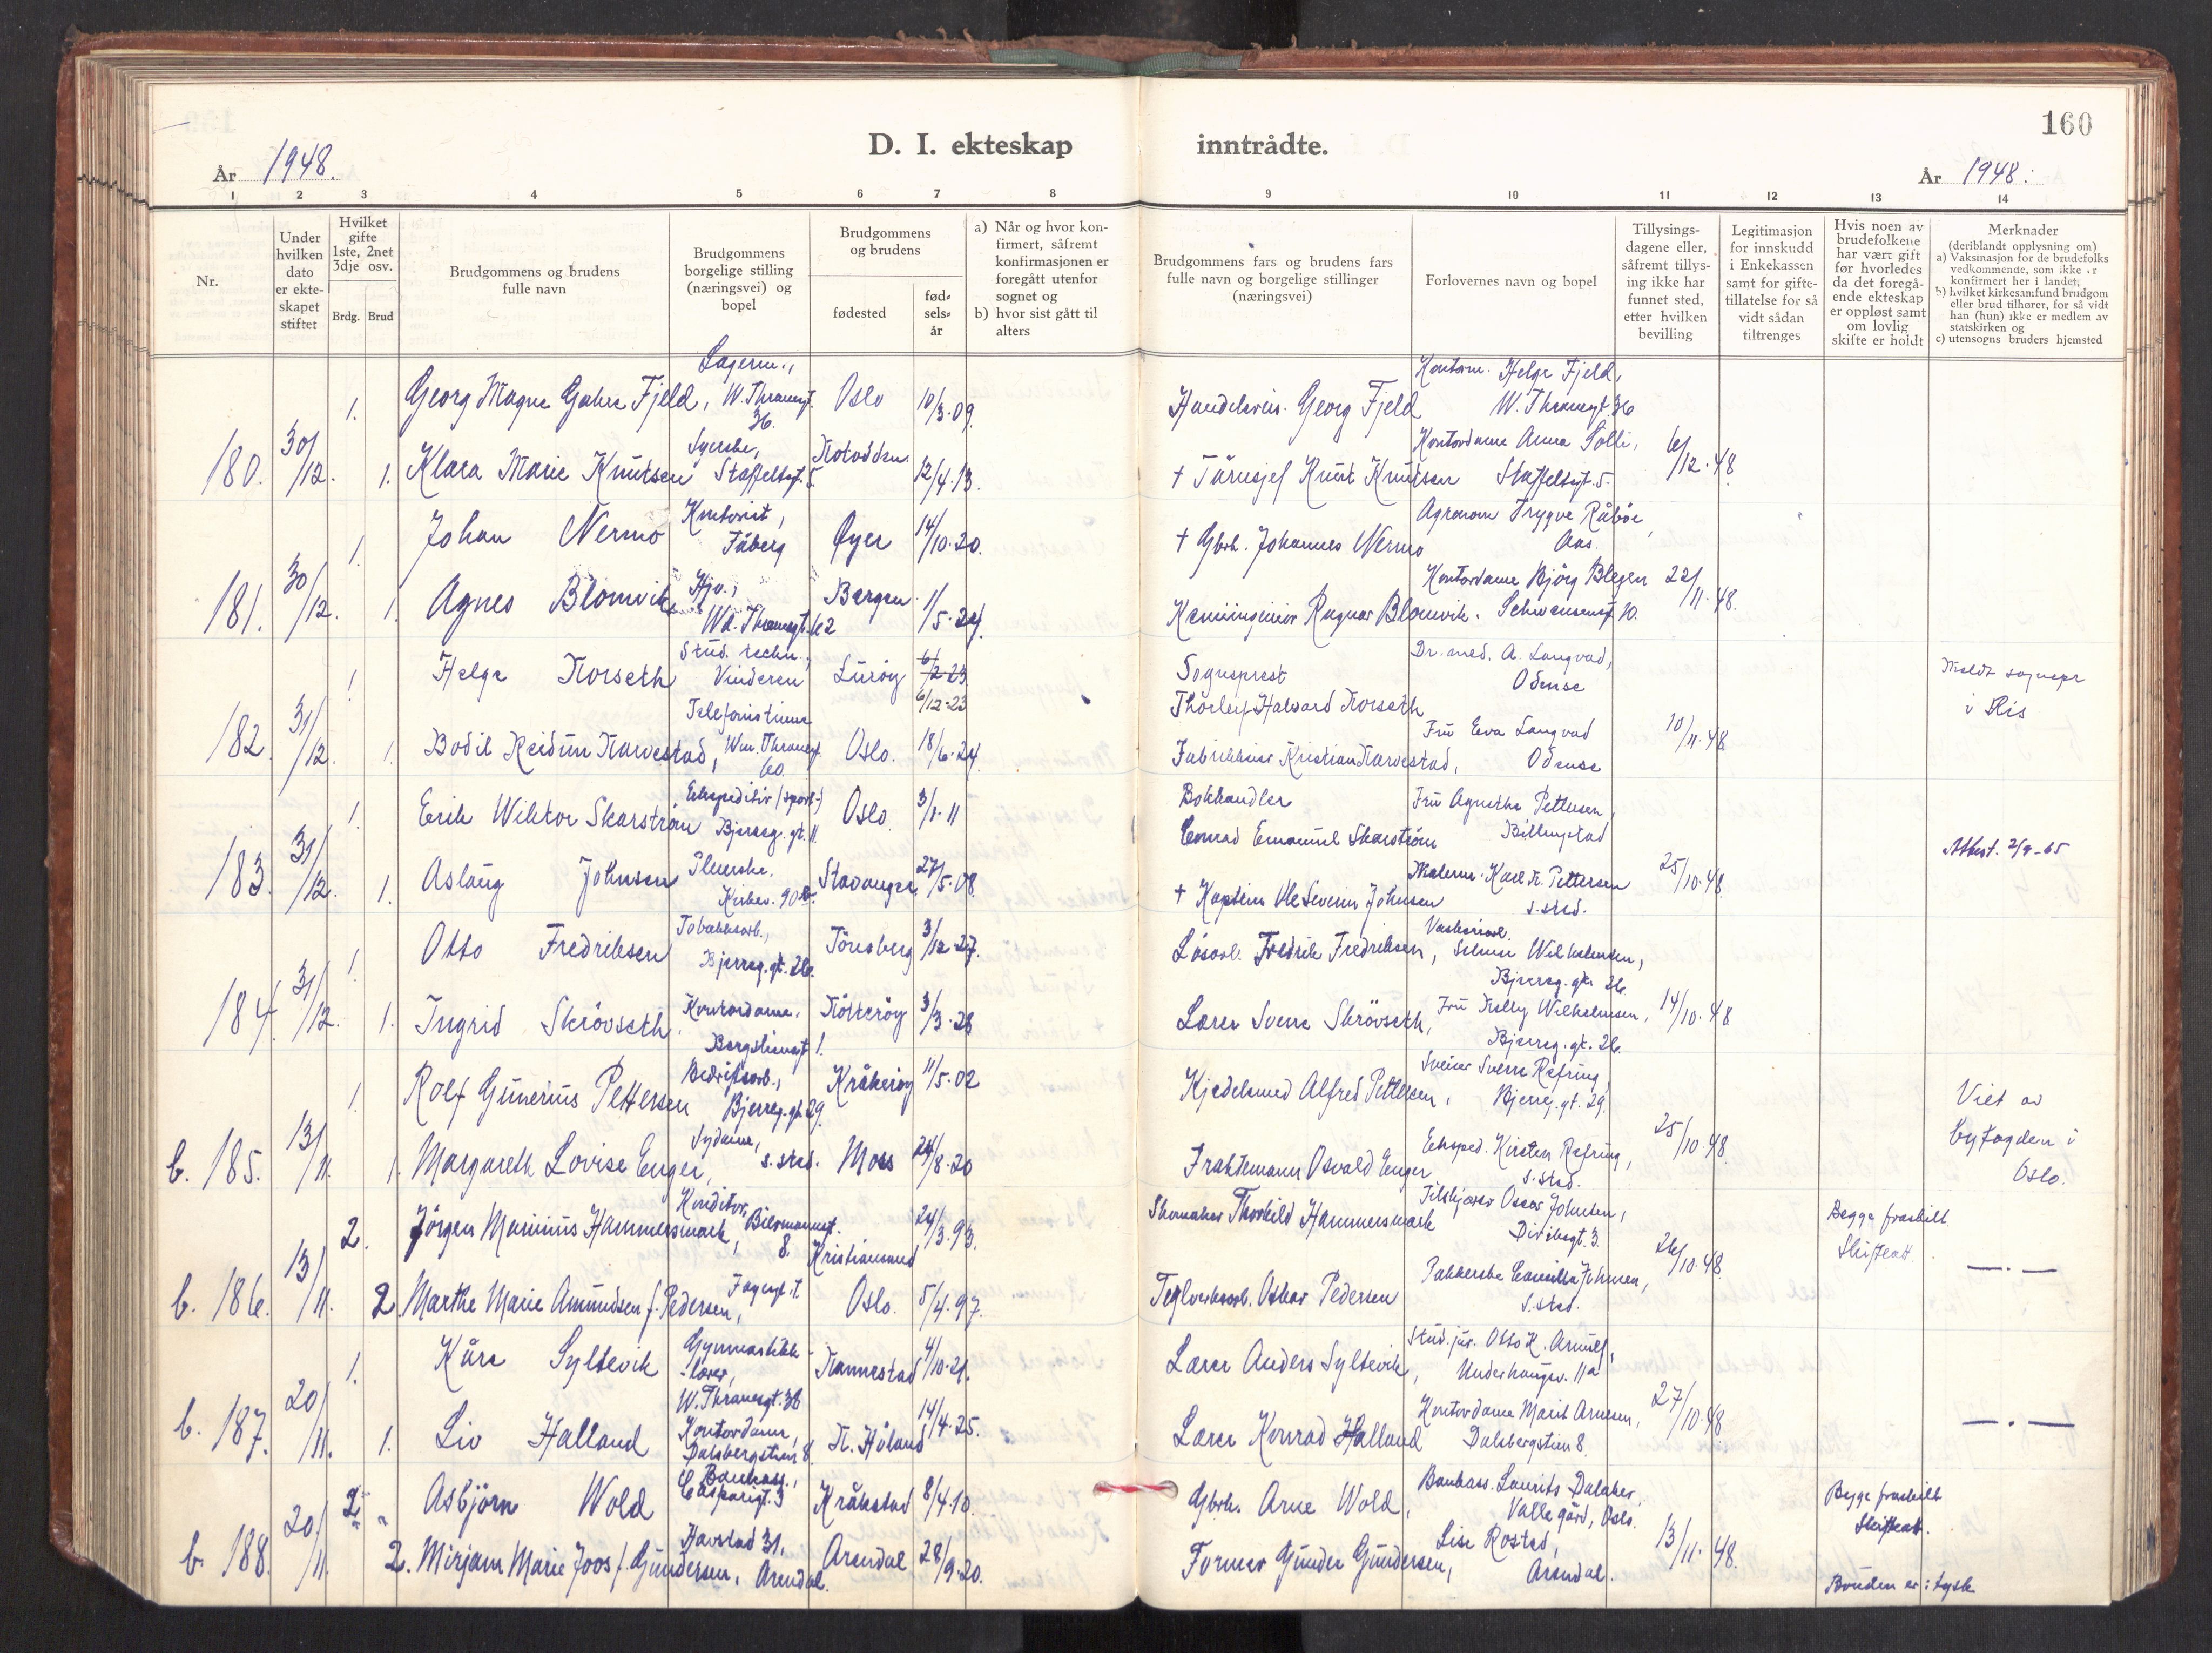 160
D. I. ekteskap inntrådte.
År 1948.
År 1948.
1 2 3 4 5 6 7 8 9 10 11 12 13 14
Nr.
Under hvilken dato er ekte-skapet stiftet
Hvilket gifte 1ste, 2net 3dje osv.
Brdg. Brud
Brudgommens og brudens fulle navn
Brudgommens borgelige stilling (næringsvei) og bopel
Brudgommens og brudens
fødested
fød-sels-år
a) Når og hvor kon-firmert, såfremt konfirmasjonen er foregått utenfor sognet og
b) hvor sist gått til alters
Brudgommens fars og brudens fars fulle navn og borgelige stillinger (næringsvei)
Forlovernes navn og bopel
Tillysings-dagene eller, såfremt tillys-ing ikke har funnet sted, etter hvilken bevilling
Legitimasjon for innskudd i Enkekassen samt for gifte-tillatelse for så vidt sådan tiltrenges
Hvis noen av brudefolkene har vært gift før hvorledes da det foregå-ende ekteskap er oppløst samt om lovlig skifte er holdt
Merknader (deriblandt opplysning om)
a) Vaksinasjon for de brudefolks vedkommende, som ikke er konfirmert her i landet,
b) hvilket kirkesamfund brudgom eller brud tilhører, for så vidt han (hun) ikke er medlem av statskirken og
c) utensogns bruders hjemsted
1. Georg Magne Fjeld, Lagerm., W. Thranesgt. 36. Oslo 10/3-09. Georg Fjeld Helge Fjeld, W. Thranesgt. 36
180. 30/12. 1. Klara Marie Knutsen Syerske, Staffeldtsgt. 5. Notodden 12/4-13. † Knut Knutsen Kontordame Anna Solli, Staffeldtsgt. 5. 6/12-48
1. Johan Nermo Fåberg Øyer 14/10-20. † Gbrk. Johannes Nermo Agronom Trygve Råböe, Aas.
181. 30/12. 1. Agnes Blomvik Hjv., W. Thranesgt. 62 Bergen 1/5-24. Kemiingeniör Ragnar Blomvik. Kontordame Björg Blegen Schwensensgt. 10. 22/11-48.
1. Helge Norseth Stud. techn., Vinderen Luröy 6/2-23 6/12-23 Sogneprest Thorleif Halvard Norseth Dr. med. A. Langvad, Odense Meldt sognepr i Ris
182. 31/12. 1. Bodil Reidun Narvestad, Telefonistinne Wm. Thranesgt. 60. Oslo. 18/6-24. Kristian Narvestad, Fru Eva Langvad Odense 10/11-48
1. Erik Wiktor Skarström Ekspeditör (sport-) Bjerreg. gt. 11. Oslo. 3/1-11 Bokhandler Conrad Emanuel Skarström Fru Agnethe Pettersen, Billingstad
183. 31/12. 1. Aslaug Johnsen Pleierske. Kirkev. 90 Stavanger 27/5-08. † Kaptein Ole Severin Johnsen Malerm. Karl Pettersen s. sted. 25/10-48 Attest. 2/9-65
1. Otto Fredriksen Tobakksarb., Bjerreg. gt. 26. Tönsberg 3/12-27. Lösarb. Fredrik Fredriksen, Vaskeriarb. Selma Wilhelmsen, Bjerreg. gt. 26.
184. 31/12. 1. Ingrid Skrövseth. Kontordame. Bergsliensgt 1. Nötteröy 3/3-28 Lærer Svenn Skrövseth, Fru Nelly Wilhelmsen, Bjerreg. gt. 26. 14/10-48
1. Rolf Gunerius Pettersen Bedriftsarb., Bjerreg. gt. 29. Kråkeröy 11/5-02 Kjedelsmed Alfred Pettersen, Sveiser Sverre Refring, Bjerreg. gt. 29.
b. 185. 13/11. 1. Margareth Lovise Enger, Sydame, s. sted. Moss 24/8-20 Fraktemann Osvald Enger Eksped. Kirsten Refring, s. sted. 25/10-48 Viet av byfogden i Oslo.
2. Jörgen Marinius Hammersmark, Konditor, Biermannsgt. 8. Kristiansund 24/3-93. Skomaker Thorkild Hammersmark Filskjærer Oscar Johnsen, Diriksgt. 3. Begge fraskilt Skifteatt
b. 186. 13/11. 2. Marthe Marie Amundsen f. Pedersen, Oslo. 5/4-97. Teglverksarb. Oskar Pedersen Pakkerske Camilla Johnsen, s. sted. 26/10-48. —.—
1. Kåre Syltevik Gymnastikk-lærer, W. Thranesgt. 36 4/10-21. Lærer Anders Syltevik, Stud. jur. Otto K. Underhaugsv. 11a
b. 187. 20/11. 1. Liv Halland Kontordame, Dalsbergstien 8. N. Höland 14/4-25. Lærer Konrad Halland Kontordame Marit Arnesen, Dalsbergstien 8. 27/10-48 —.—
2. Asbjörn Wold Bankass., Casparigt. 3 Kråkstad 8/4-10. Gbrk. Arne Wold, Bankass. Laurits Dalaker, Valle gård, Oslo. Begge fraskilt Skifteatt.
b. 188. 20/11. 2. Mirjam Marie Joos f. Gundersen, Havstad 31, Arendal. Arendal 28/9-20. Former Gunder Gundersen, Lise Rostad, Arendal. 13/11-48. Bruden er: tysk